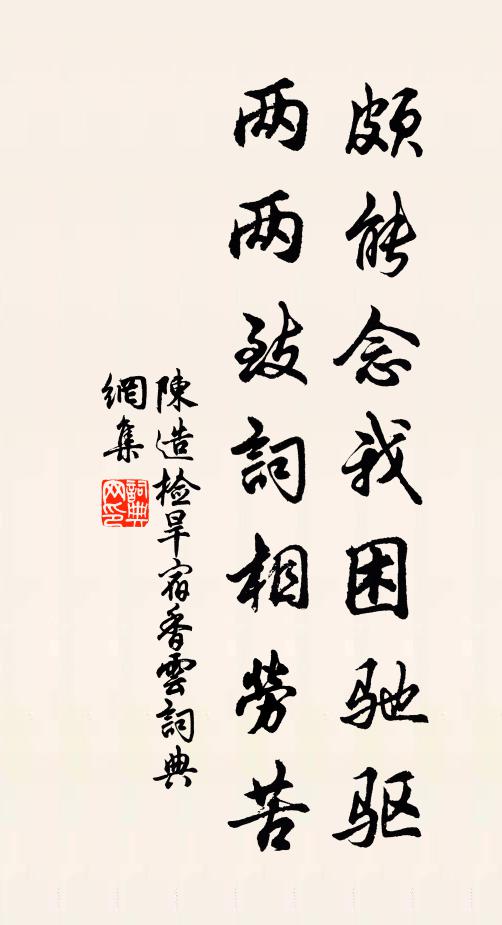 颇能念我困驰驱
两两致詞相勞苦
陳造检旱宿香雲詞典
網集
詞典
网印